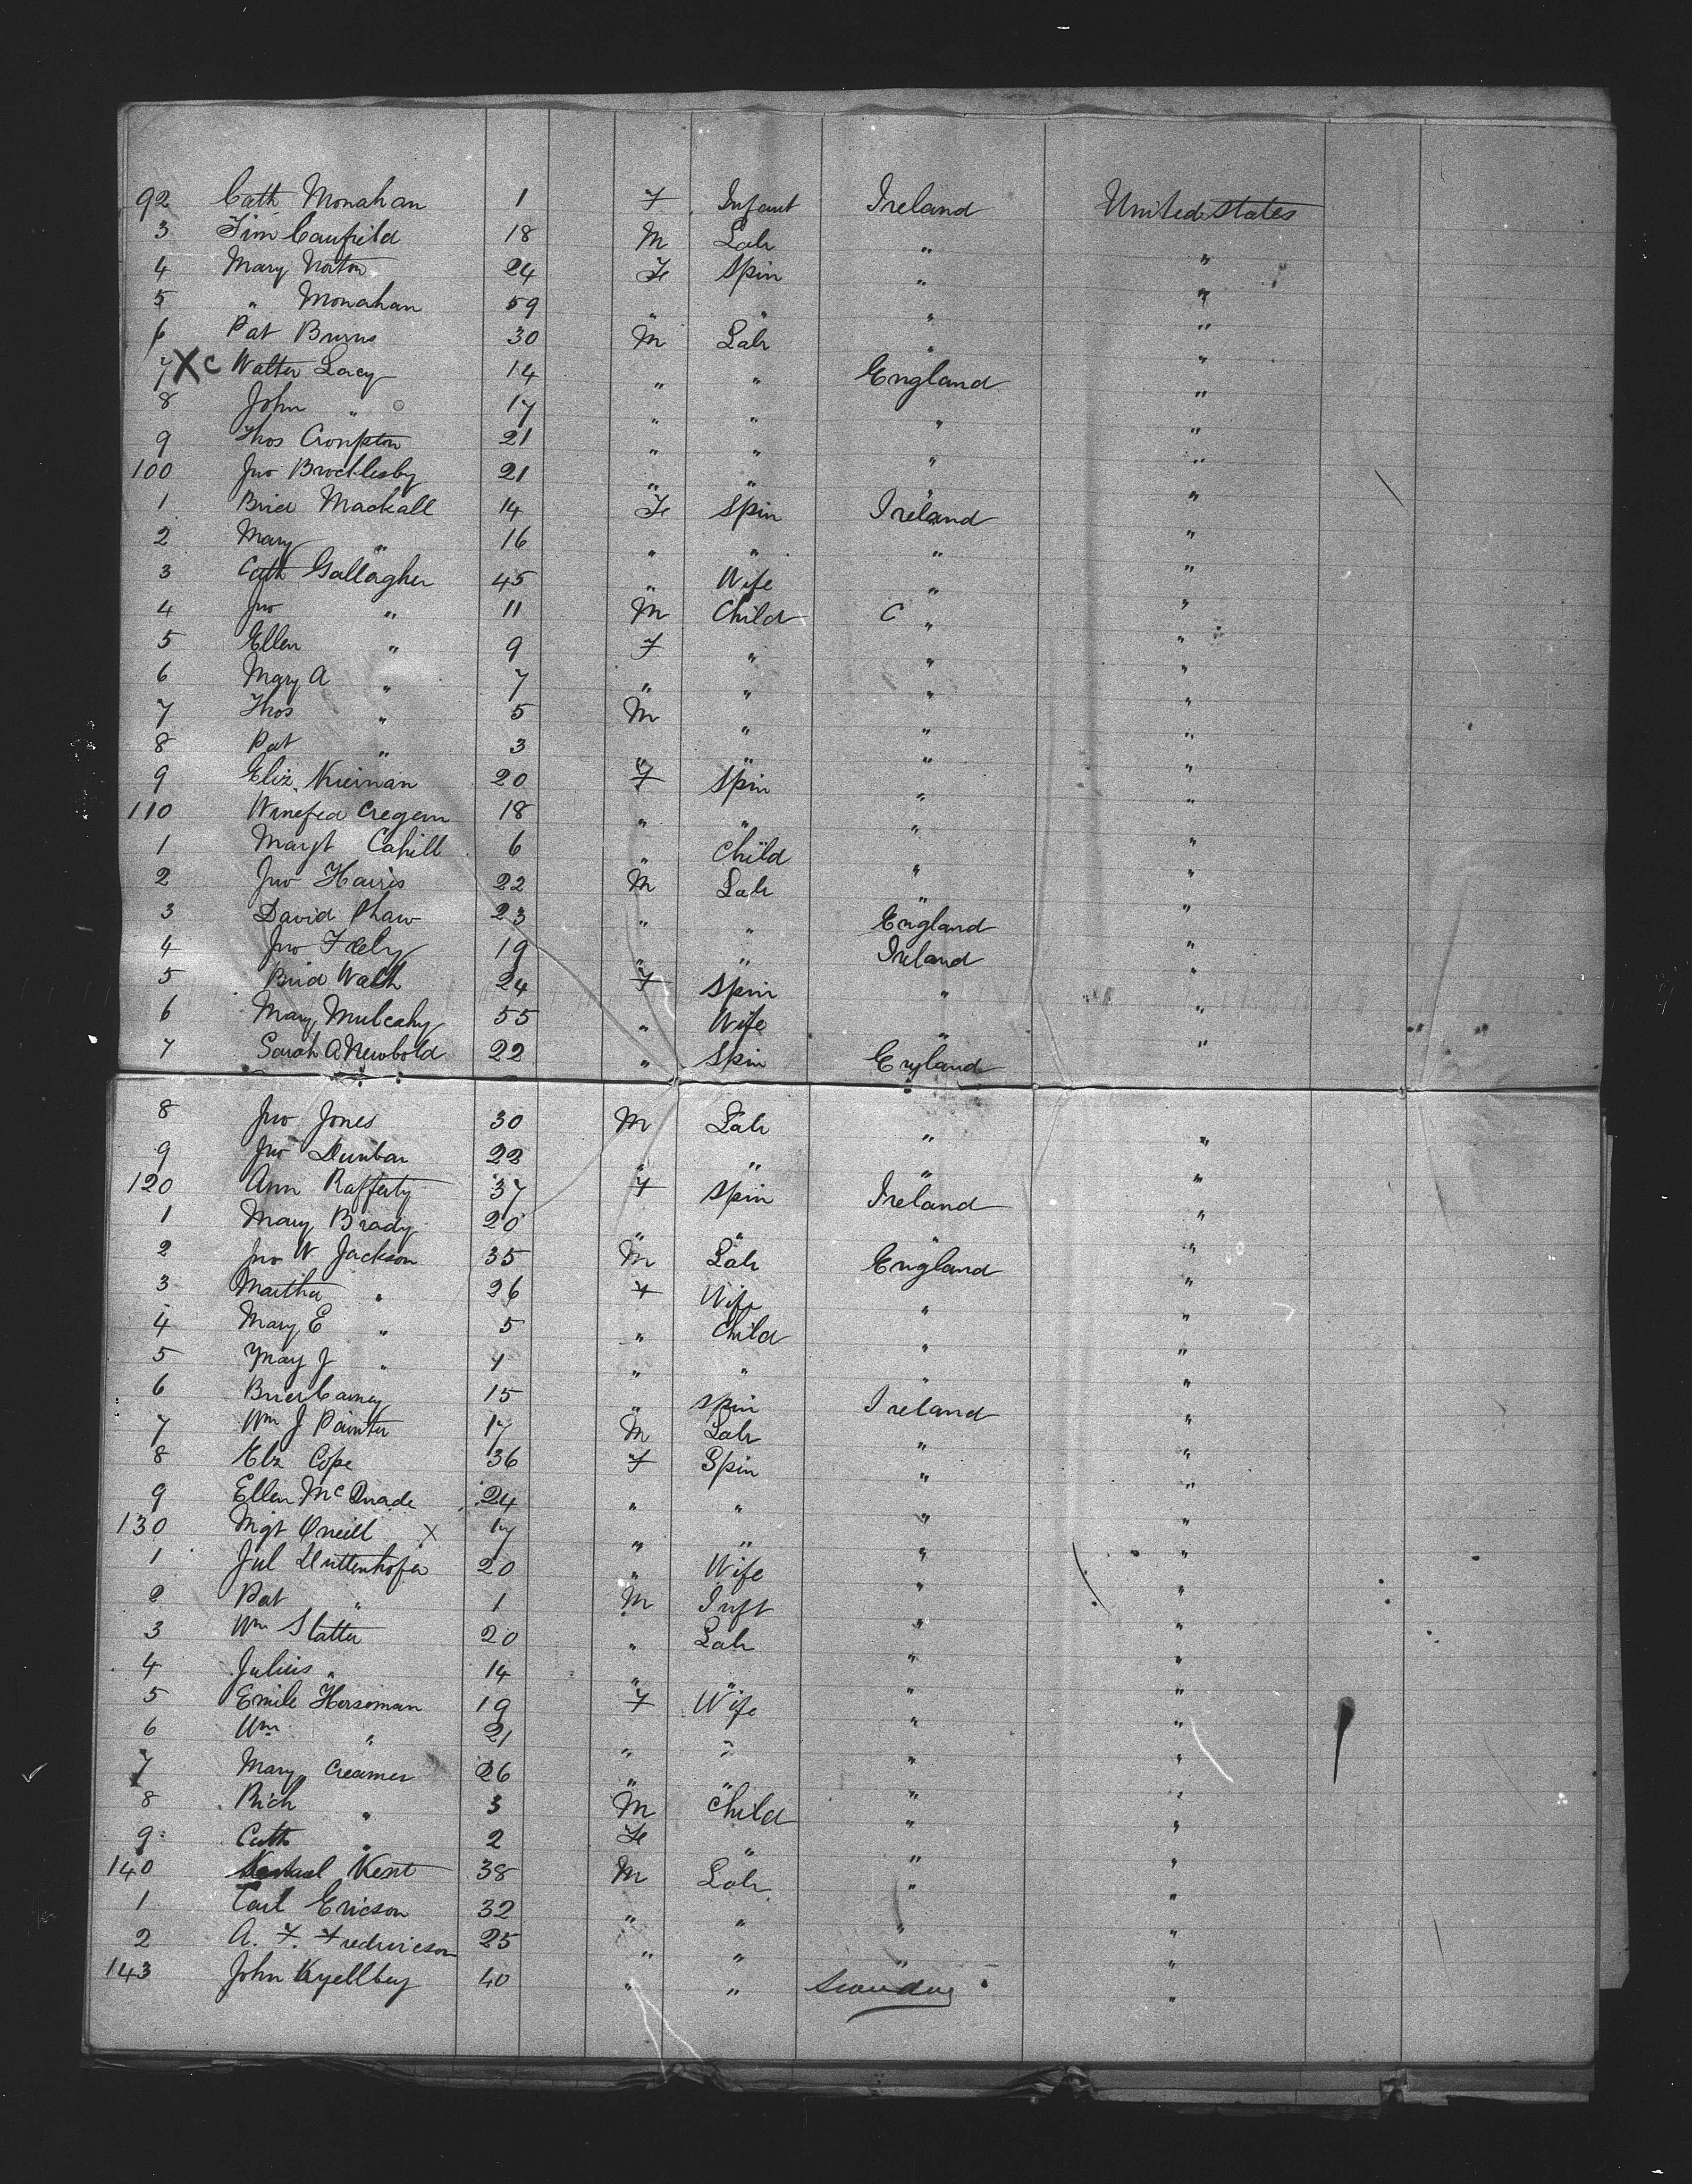 92 Cath Monahan 1 F Infant Ireland United States
3 Tim Caufield 18 M Lab " "
4 Mary Norton 24 Fe Spin " "
5 " Monahan 59 " " " "
6 Pat Burns 30 M Lab " "
7 X C Walter Lacy 14 " " England "
8 John " 17 " " " "
9 Thos Crompton 21 " " " "
100 Jno Brocklesby 21 " " " "
1 Brid Mackall 14 Fe Spin Ireland "
2 Mary " 16 " " " "
3 Cath Gallagher 45 " Wife " "
4 Jno " 11 M Child C " "
5 Ellen " 9 F " " "
6 Mary A " 7 " " " "
7 Thos " 5 M " " "
8 Pat " 3 " " " "
9 Eliz. Kieirnan 20 F Spin " "
110 Winefed Cregem 18 " " " "
1 Margt Cahill 6 " Child " "
2 Jno Harris 22 M Lab " "
3 David Shaw 23 " " England "
4 Jno Feely 19 " " Ireland "
5 Brid Walsh 24 F Spin " "
6 Mary Mulcahy 55 " Wife " "
7 Sarah A Newbold 22 " Spin England
8 Jno Jones 30 M Lab " "
9 Jno Dunbar 22 " " " "
120 Ann Rafferty 37 F Spin Ireland "
1 Mary Brady 20 " " " "
2 Jno W Jackson 35 M Lab England "
3 Martha " 26 F Wife " "
4 Mary E " 5 " Child " "
5 May J " 4 " " " "
6 Brid Carney 15 " Spin Ireland "
7 Wm J Painter 17 M Lab " "
8 Elz Cope 36 F Spin " "
9 Ellen McQuade 24 " " " "
130 Mgt Oneill X 17 " " " "
1 Jul Duttenhofer 20 " Wife " "
2 Pat " 1 M Inft " "
3 Wm Slatter 20 " Lab " "
4 Julius " 14 " " " "
5 Emile Horseman 19 F Wife " "
6 Wm " 21 " " " "
7 Mary Creamer 26 " " " "
8 Rich " 3 M Child " "
9 Cath " 2 Fe " " "
140 Kent 38 M Lab " "
1 Carl Ericson 32 " " " "
2 A. F. Fredricson 25 " " " "
143 John Kyellbey 40 " " "